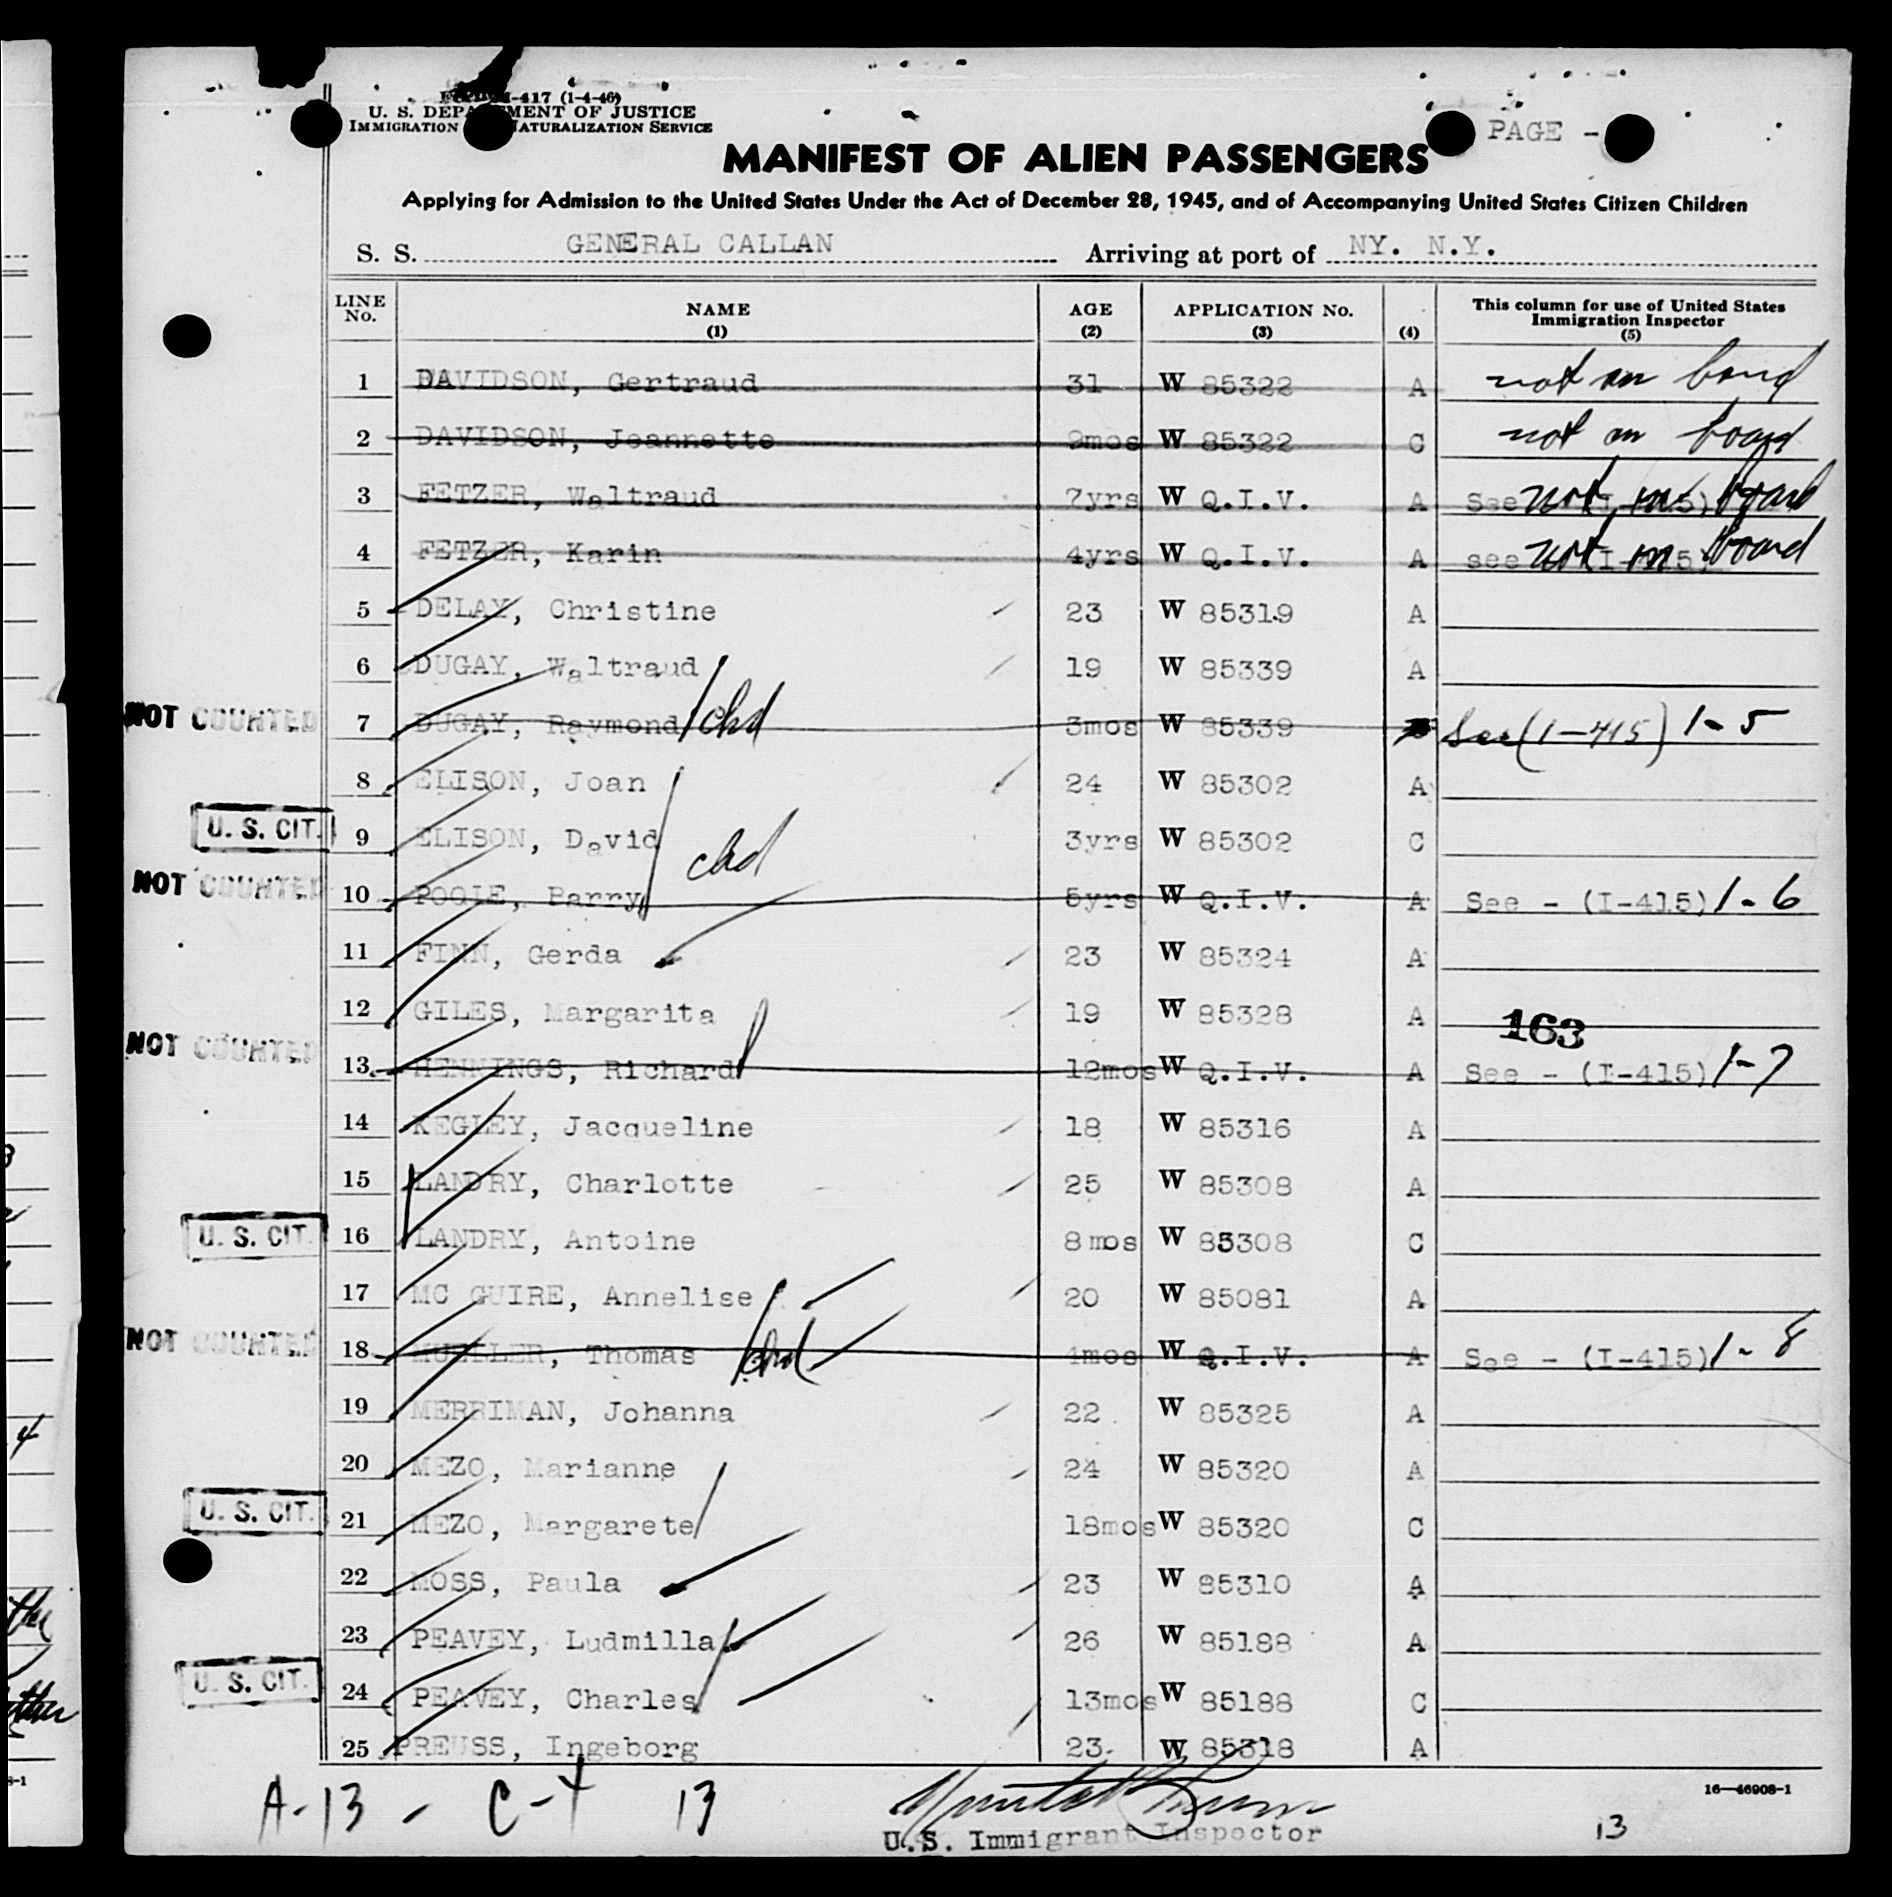 FORM I-417 (1-4-46)
U. S. DEPARTMENT OF JUSTICE
IMMIGRATION NATURALIZATION SERVICE
PAGE -
MANIFEST OF ALIEN PASSENGERS
Applying for Admission to the United States Under the Act of December 28, 1945, and of Accompanying United States Citizen Children
S. S. GENERAL CALLAN Arriving at port of NY. N.Y.
LINE No. NAME (1) AGE (2) APPLICATION No. (3) (4) This column for use of United States Immigration Inspector (5)
1 DAVIDSON, Gertraud 31 W 85322 A not on board
2 DAVIDSON, Jeannette 9mos W 85322 C not on board
3 FETZER, Waltraud 7yrs W Q.I.V. A See (I-415) not on board
4 FETZER, Karin 4yrs W Q.I.V. A see (I-415) not on board
5 DELAY, Christine 23 W 85319 A
6 DUGAY, Waltraud 19 W 85339 A
NOT COUNTED 7 DUGAY, Raymond chd 3mos W 85339 See (1-415) 1-5
8 ELISON, Joan 24 W 85302 A
U. S. CIT. 9 ELISON, David chd 3yrs W 85302 C
NOT COUNTED 10 POOLE, Barry 5yrs W Q.I.V. A See - (I-415) 1-6
11 FINN, Gerda 23 W 85324 A
12 GILES, Margarita 19 W 85328 A
163
NOT COUNTED 13 HENNINGS, Richard 12mos W Q.I.V. A See - (I-415) 1-7
14 KEGLEY, Jacqueline 18 W 85316 A
15 LANDRY, Charlotte 25 W 85308 A
U. S. CIT. 16 LANDRY, Antoine 8mos W 85308 C
17 MC GUIRE, Annelise 20 W 85081 A
NOT COUNTED 18 MUELLER, Thomas chd 4mos W Q.I.V. A See - (I-415) 1-8
19 MERRIMAN, Johanna 22 W 85325 A
20 MEZO, Marianne 24 W 85320 A
U. S. CIT. 21 MEZO, Margarete 18mos W 85320 C
22 MOSS, Paula 23 W 85310 A
23 PEAVEY, Ludmilla 26 W 85188 A
U. S. CIT. 24 PEAVEY, Charles 13mos W 85188 C
25 PREUSS, Ingeborg 23 W 85318 A
16—46908-1
A-13 - C-4 13
U.S. Immigrant Inspector
13